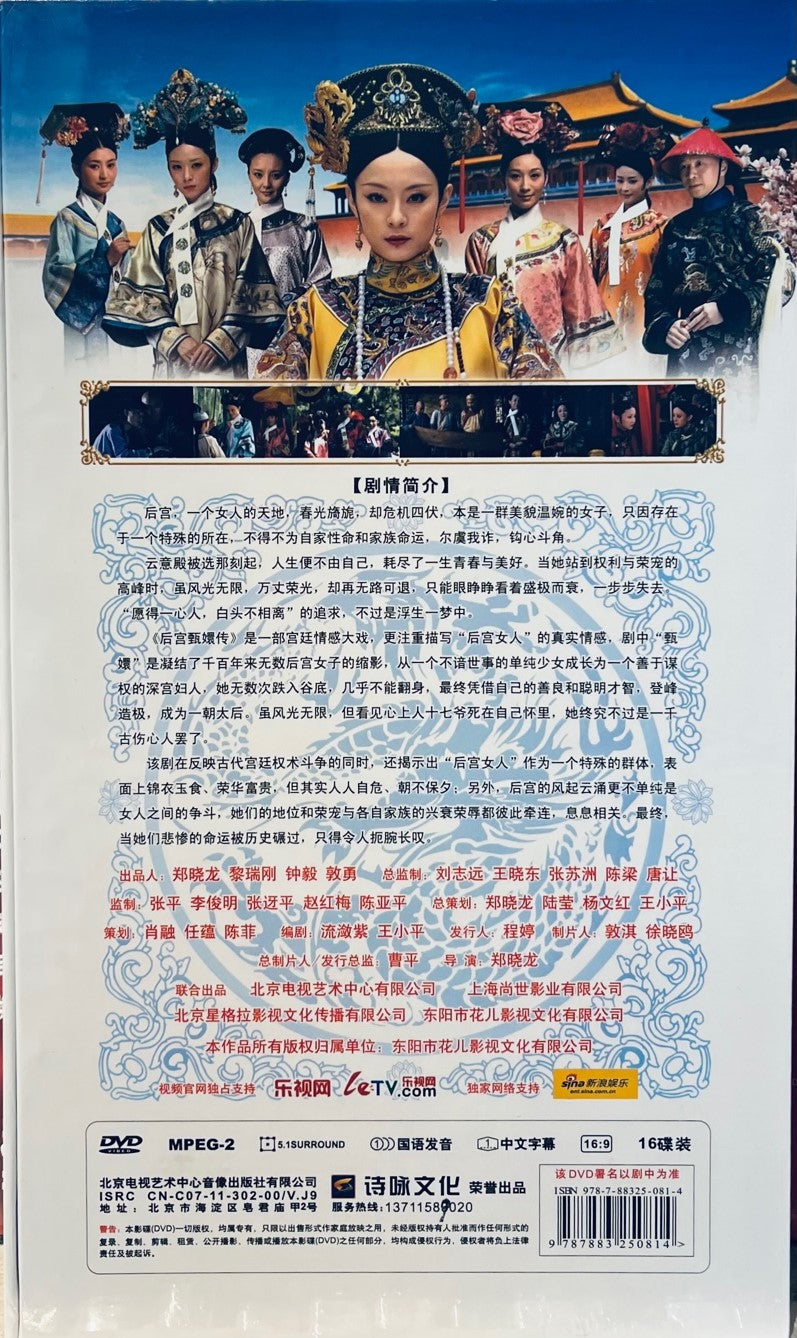 【剧情简介】
后宫，一个女人的天地，春光旖旎，却危机四伏，本是一群美貌温婉的女子，只因存在
于一个特殊的所在，不得不为自家性命和家族命运，尔虞我诈，钩心斗角。
云意殿被选那刻起，人生便不由自己，耗尽了一生青春与美好。当她站到权利与荣宠的
高峰时，虽风光无限，万丈荣光，却再无路可退，只能眼睁睁看着盛极而衰，一步步失去。
“愿得一心人，白头不相离”的追求，不过是浮生一梦中。
《后宫甄嬛传》是一部宫廷情感大戏，更注重描写“后宫女人”的真实情感，剧中“甄
嬛”是凝结了千百年来无数后宫女子的缩影，从一个不谙世事的单纯少女成长为一个善于谋
权的深宫妇人，她无数次跌入谷底，几乎不能翻身，最终凭借自己的善良和聪明才智，登峰
造极，成为一朝太后。虽风光无限，但看见心上人十七爷死在自己怀里，她终究不过是一千
古伤心人罢了。
该剧在反映古代宫廷权术斗争的同时，还揭示出“后宫女人”作为一个特殊的群体，表
面上锦衣玉食、荣华富贵，但其实人人自危、朝不保夕；另外，后宫的风起云涌更不单纯是
女人之间的争斗，她们的地位和荣宠与各自家族的兴衰荣辱都彼此牵连，息息相关。最终，
当她们悲惨的命运被历史碾过，只得令人扼腕长叹。
出品人：郑晓龙 黎瑞刚 钟毅 敦勇 总监制：刘志远 王晓东 张苏洲 陈梁 唐让
监制：张平 李俊明 张迓平 赵红梅 陈亚平 总策划：郑晓龙 陆莹 杨文红 王小平
策划：肖融 任蕴 陈菲 编剧：流潋紫 王小平 发行人：程婷 制片人：敦淇 徐晓鸥
总制片人/发行总监：曹平 导 演：郑晓龙
联合出品 北京电视艺术中心有限公司 上海尚世影业有限公司
北京星格拉影视文化传播有限公司 东阳市花儿影视文化有限公司
本作品所有版权归属单位：东阳市花儿影视文化有限公司
视频官网独占支持 乐视网 LeTV.com 乐视网 独家网络支持 sina 新浪娱乐 ent.sina.com.cn
DVD VIDEO MPEG-2 5.1SURROUND 1 国语发音 1 中文字幕 16:9 16碟装
北京电视艺术中心音像出版社有限公司 诗咏文化 荣誉出品 该DVD署名以剧中为准
ISRC CN-C07-11-302-00/V.J9 ISBN 978-7-88325-081-4
地 址：北京市海淀区皂君庙甲2号 服务热线:
警告：本影碟(DVD)一切版权，均属专有，只限以出售形式作家庭放映之用，未经版权持有人批准而作任何形式的
复录、复制、剪辑、租赁、公开播影、传播或播放本影碟(DVD)之任何部分，均构成侵权行为，侵权者将负上法律
责任及被起诉。
9 787883 250814 >